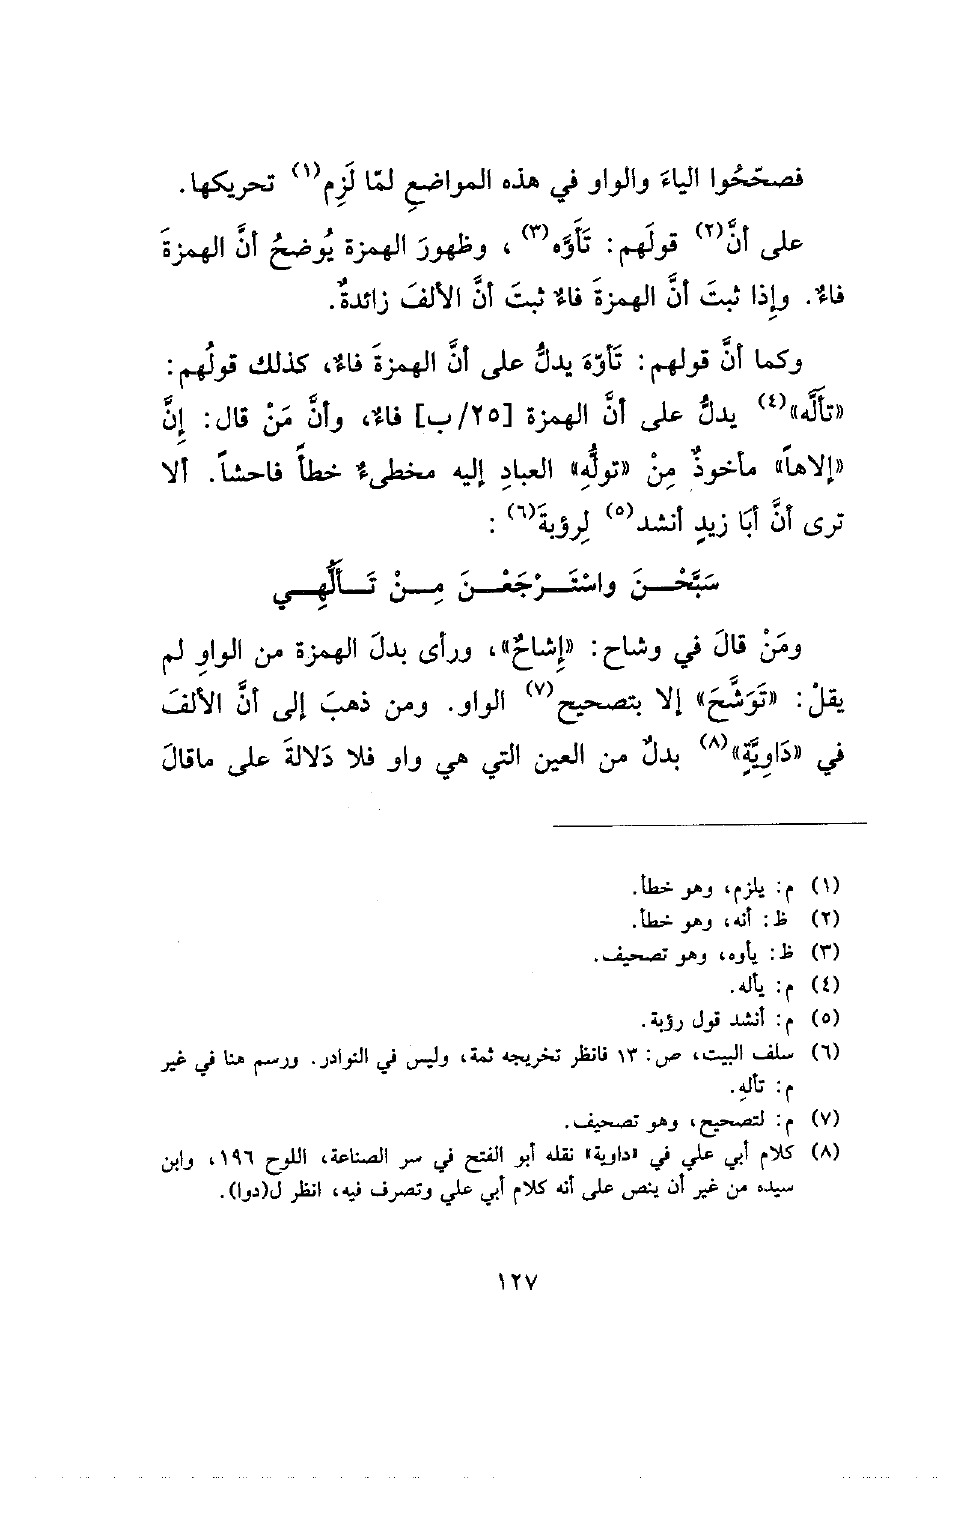 فصحّحُوا الياءَ والواو في هذه المواضعِ لمّا لَزِم(١) تحريكها.
على أنَّ(٢) قولَهم: تَأَوَّه(٣)، وظهورَ الهمزة يُوضحُ أنَّ الهمزةَ
فاءٌ. وإذا ثبتَ أنَّ الهمزةَ فاءٌ ثبتَ أنَّ الألفَ زائدةٌ.
وكما أنَّ قولهم: تَأوّهَ يدلُّ على أنَّ الهمزةَ فاءٌ، كذلك قولُهم:
«تألَّه»(٤) يدلُّ على أنَّ الهمزة [٢٥/ب] فاءٌ، وأنَّ مَنْ قال: إنَّ
«إلاهاً» مأخوذٌ مِنْ «تولُّهِ» العبادِ إليه مخطىءٌ خطأً فاحشاً. ألا
ترى أنَّ أبَا زيدٍ أنشد(٥) لِرؤبةَ(٦):
سَبَّحْـنَ واسْتَـرْجَعْـنَ مِـنْ تَـألُّهِـي
ومَنْ قالَ في وشاح: «إشاحٌ»، ورأى بدلَ الهمزة من الواوِ لم
يقلْ: «تَوَشَّحَ» إلا بتصحيح(٧) الواو. ومن ذهبَ إلى أنَّ الألفَ
في «دَاوِيَّةٍ»(٨) بدلٌ من العين التي هي واو فلا دَلالةَ على ماقالَ
(١) م: يلزم، وهو خطأ.
(٢) ظ: أنه، وهو خطأ.
(٣) ظ: يأوه، وهو تصحيف.
(٤) م: يأله.
(٥) م: أنشد قول رؤبة.
(٦) سلف البيت، ص: ١٣ فانظر تخريجه ثمة، وليس في النوادر. ورسم هنا في غير
م: تألهِ.
(٧) م: لتصحيح، وهو تصحيف.
(٨) كلام أبي علي في «داوية» نقله أبو الفتح في سر الصناعة، اللوح ١٩٦، وابن
سيده من غير أن ينص على أنه كلام أبي علي وتصرف فيه، انظر ل(دوا).
١٢٧